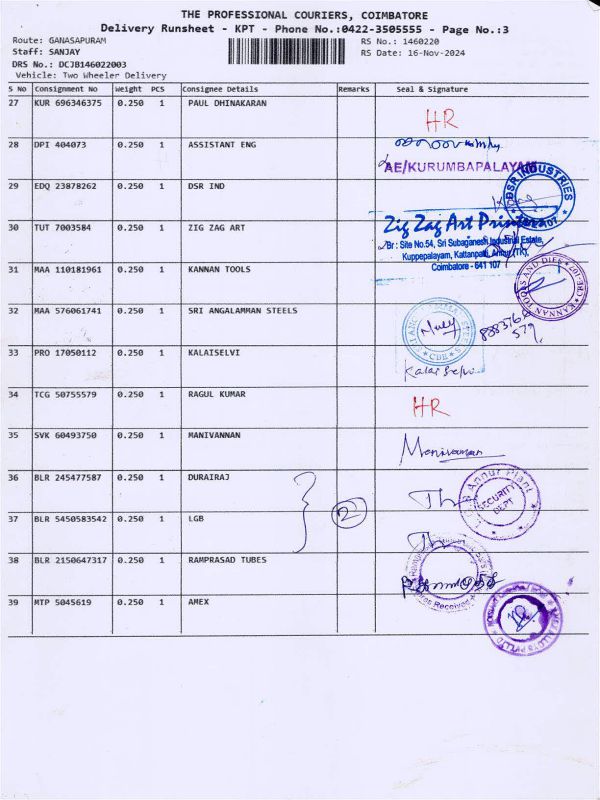 THE PROFESSIONAL COURIERS, COIMBATORE
Delivery Runsheet - KPT - Phone No.:0422-3505555 - Page No.:3
Route: GANASAPURAM
RS No.: 1460220
Staff: SANJAY
RS Date: 16-Nov-2024
DRS No.: DCJB146022003
Vehicle: Two Wheeler Delivery
S No Consignment No Weight PCS Consignee Details Remarks Seal & Signature
27 KUR 696346375 0.250 1 PAUL DHINAKARAN HR
28 DPI 404073 0.250 1 ASSISTANT ENG
AE/KURUMBAPALAYAM
29 EDQ 23878262 0.250 1 DSR IND
DSR INDUSTRIES
30 TUT 7003584 0.250 1 ZIG ZAG ART
Zig Zag Art Printers
Br : Site No.54, Sri Subaganesh Industrial Estate,
Kuppepalayam, Kattanpatti, Annur (TK),
Coimbatore - 641 107
31 MAA 110181961 0.250 1 KANNAN TOOLS
KANNAN TOOLS AND DIES CBE-107
32 MAA 576061741 0.250 1 SRI ANGALAMMAN STEELS
CBE
33 PRO 17050112 0.250 1 KALAISELVI
Kalai Selvi
34 TCG 50755579 0.250 1 RAGUL KUMAR HR
35 SVK 60493750 0.250 1 MANIVANNAN Manivannan
36 BLR 245477587 0.250 1 DURAIRAJ
Annur Plant
SECURITY
DEPT
37 BLR 5450583542 0.250 1 LGB 2
38 BLR 2150647317 0.250 1 RAMPRASAD TUBES
39 MTP 5045619 0.250 1 AMEX
ALLOYS PVT LTD